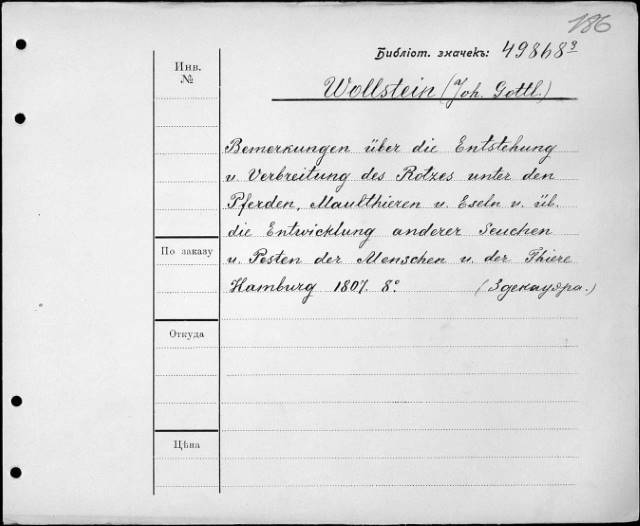 186
Библіот. значекъ: 49868³
Инв.
№
Wollstein (Joh. Gottl.)
Bemerkungen über die Entstehung
u. Verbreitung des Rotzes unter den
Pferden, Maulthieren u. Eseln u. üb.
die Entwicklung anderer Seuchen
u. Pesten der Menschen u. der Thiere
Hamburg 1807. 8°
По заказу
Откуда
Цѣна